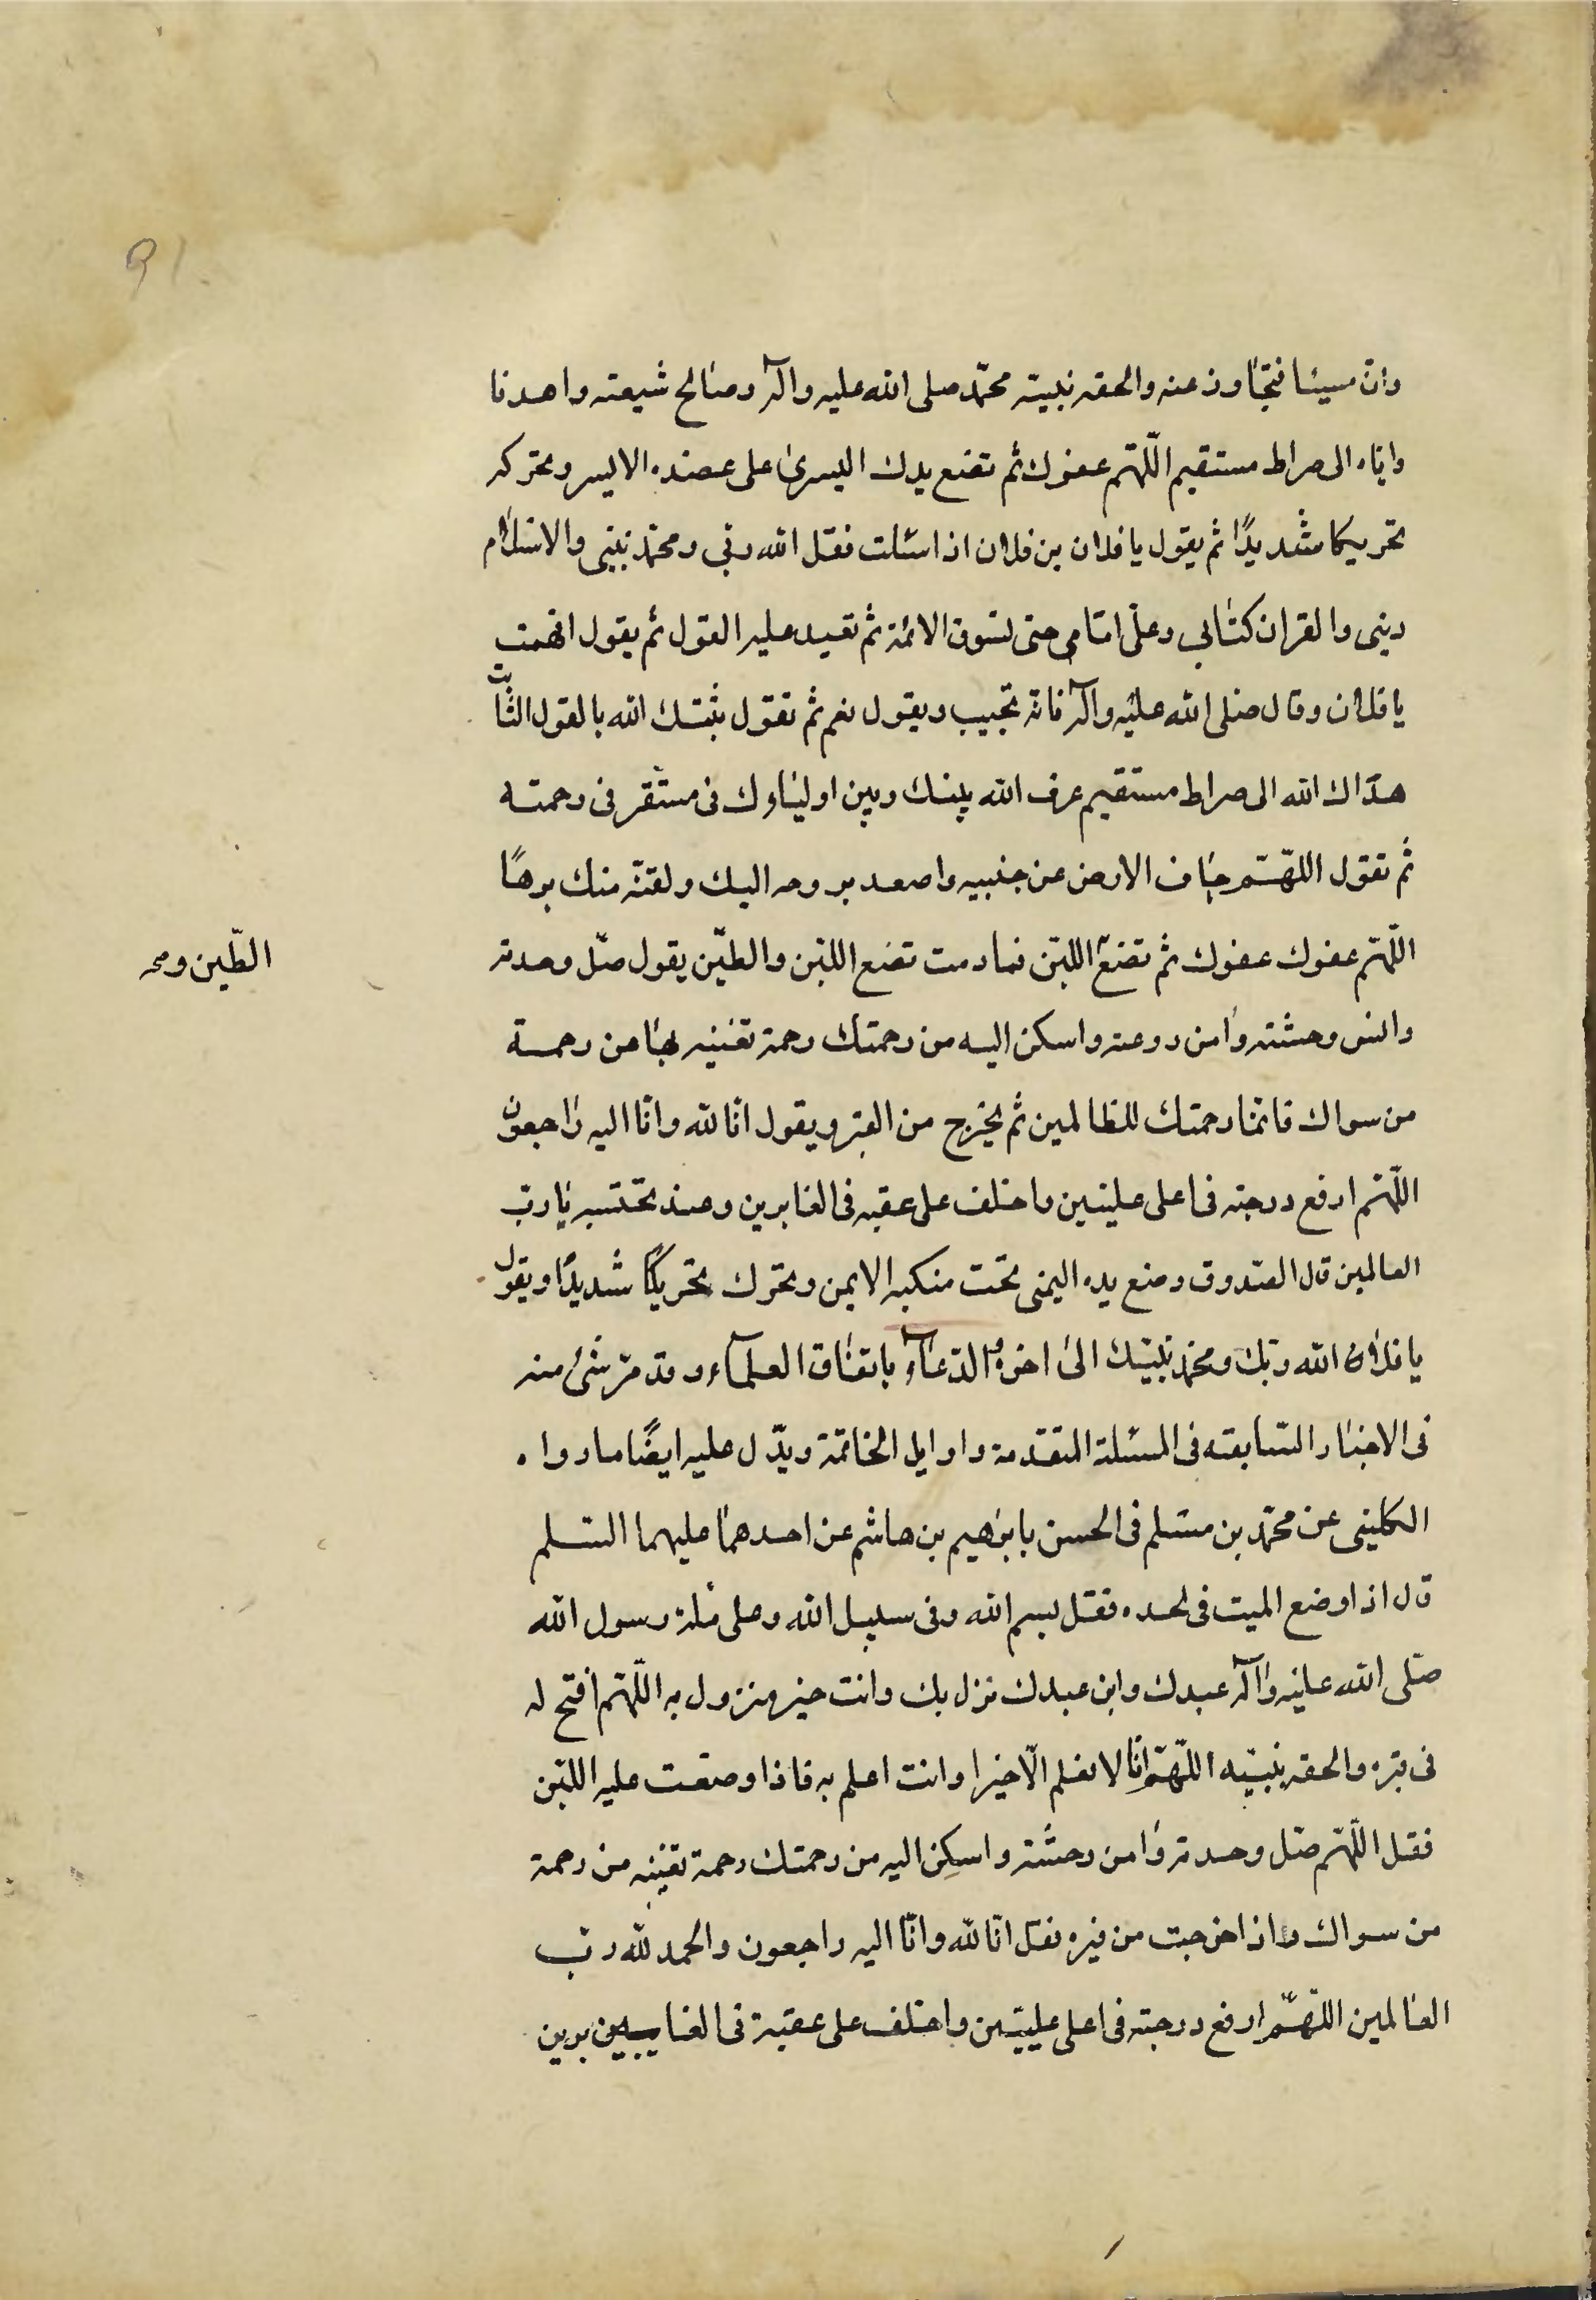 91
وان مسيئا فتجاوز عنه والحقه بنبيّه محمّد صلى الله عليه وآله وصالح شيعته واهدنا
وايّاه الى صراط مستقيم اللّهم عفوك ثم تضع يدك اليسرى على عضده الايسر وتحركه
تحريكا شديدًا ثم يقول يا فلان بن فلان اذا سئلت فقل الله ربّي ومحمّد نبيّى والاسلام
دينى والقران كتابي وعلىّ امامى حتى تسوق الائمة ثم تعيد عليه القول ثم يقول افهمت
يا فلان وقال صلى الله عليه وآله فانه تجيب ويقول نعم ثم تقول ثبتك الله بالقول الثابت
هداك الله الى صراط مستقيم عرف الله بينك وبين اوليناوك فى مستقر فى رحمته
ثم تقول اللّهمّ جاف الارض عن جنبيه واصعد بروحه اليك ولقنّه منك برهًا
اللّهمّ عفوك عفوك ثم تضع اللبن فما دمت تضع اللبن والطّين يقول صل وحدته
الطّين ومح
وانس وحشته وامن روعته واسكن اليه من رحمتك رحمة تغنيه بها عن رحمة
من سواك فانما رحمتك للظالمين ثم يخرج من القبر ويقول انّا لله وانّا اليه راجعون
اللّهم ارفع درجته فى اعلى عليّين واخلف على عقبه فى الغابرين وعند تحتسبه يا ربّ
العالمين قال الصّدوق وضع يده اليمنى تحت منكبه الايمن وتحرك تحريكًا شديدًا ويقول
يا فلان الله ربّك ومحمّد نبيّك الى اخره والدّعاء باتفاق العلمآء وقد مرّ شئ منه
فى الاخبار السّابقه فى المسئلة المتقدمة واوايل الخاتمة ويدّل عليه ايضًا ما رواه
الكلينى عن محمّد بن مسلم فى الحسن بابرٰهيم بن هاشم عن احدهما عليهما السلم
قال اذا وضع الميت فى لحده فقل بسم الله وفى سبيل الله وعلى ملة رسول الله
صلّى الله عليه وآله عبدك وابن عبدك نزل بك وانت خير منزول به اللّهم افتح له
فى قبره والحقه بنبيّه اللّهمّ انّا لا نعلم الّا خيرا وانت اعلم به فاذا وضعت عليه اللبن
فقل اللّهم صل وحدته وامن وحشته واسكن اليه من رحمتك رحمة تغنيه من رحمة
من سواك واذا خرجت من قبره فقل انّا لله وانّا اليه راجعون والحمد لله ربّ
العالمين اللّهمّ ارفع درجته فى اعلى عليّين واخلف على عقبة فى الغابرين